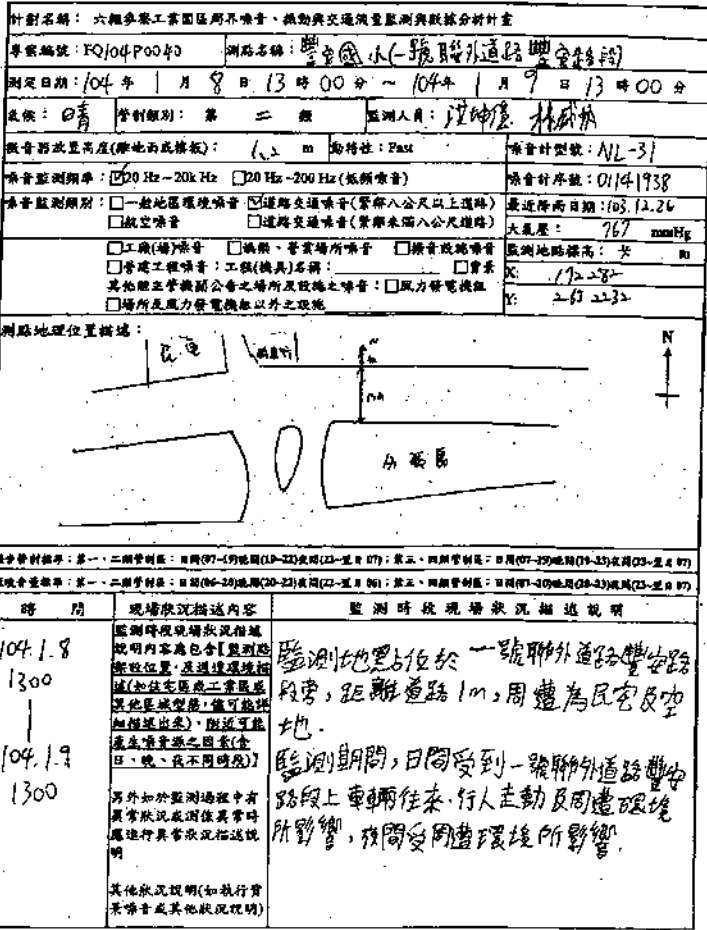 計劃名稱： 六輕參寮工業園區周界噪音、振動與交通流量監測與數據分析計畫
專案編號：FQ104P0040 測點名稱：豐安國小(一號聯外道路豐安路段)
測定日期：104 年 1 月 8 日 13 時 00 分 ~ 104年 1 月 9 日 13 時 00 分
氣候：晴 管制類別： 第 二 類 監測人員：
微音器放置高度(離地面或樓板)： 1.2 m 動特性：Fast 噪音計型號：NL-31
噪音監測頻率：☑20 Hz~20k Hz □20 Hz~200 Hz (低頻噪音) 噪音計序號：01141938
噪音監測類別：□一般地區環境噪音 ☑道路交通噪音(緊鄰八公尺以上道路) 最近降雨日期：103.12.26
□航空噪音 □道路交通噪音(緊鄰未滿八公尺道路) 大氣壓： 767 mmHg
□工廠(場)噪音 □娛樂、營業場所噪音 □擴音設施噪音 監測地點標高： m
□營建工程噪音：工程(機具)名稱： □背景 X: 192282
其他經主管機關公告之場所及設施之噪音：□風力發電機組 Y: 2632232
□場所及風力發電機組以外之設施
測點地理位置描述：
民宅
N
分隔島
噪音管制標準：第一、二類管制區：日間(07~19)晚間(19~22)夜間(22~翌日07)；第三、四類管制區：日間(07~19)晚間(19~23)夜間(23~翌日07)
第一、二類管制區：日間(06~20)晚間(20~22)夜間(22~翌日06)；第三、四類管制區：日間(07~20)晚間(20~23)夜間(23~翌日07)
時 間 現場狀況描述內容 監 測 時 段 現 場 狀 況 描 述 說 明
104.1.8
1300
|
104.1.9
1300
監測時段現場狀況描述
說明內容應包含【監測點
架設位置，及週遭環境描
述(如住宅區或工業區或
其他區域型態，儘可能詳
細描述出來)，附近可能
產生噪音源之因素(含
日、晚、夜不同時段)】
另外如於監測過程中有
異常狀況或測值異常時
應進行異常狀況描述說
明
其他狀況說明(如執行背
景噪音或其他狀況說明)
監測地點位於一號聯外道路豐安路
段旁，距離道路1m，周遭為民宅及空
地.
監測期間，日間受到一號聯外道路豐安
路段上車輛往來、行人走動及周遭環境
所影響，夜間受周遭環境所影響.